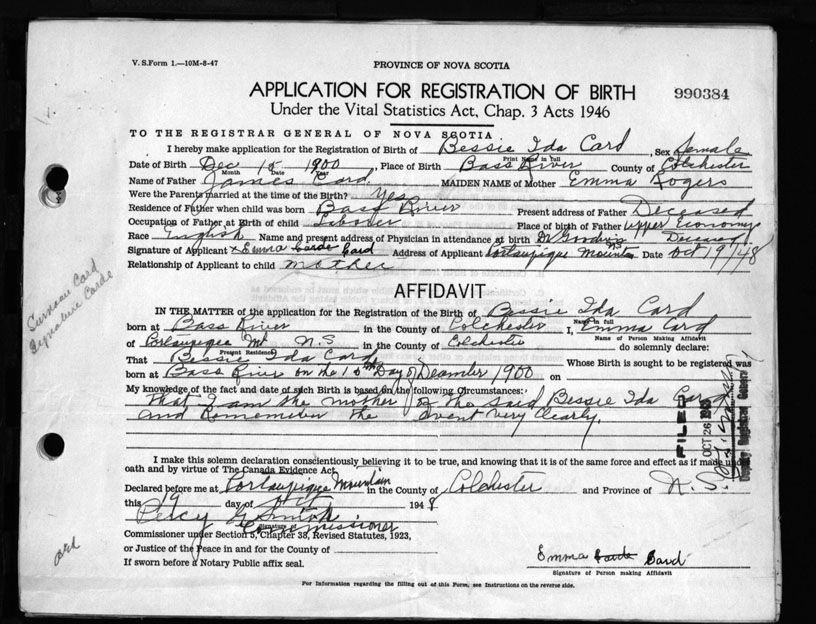 V. S. Form 1.—10M-8-47
PROVINCE OF NOVA SCOTIA
APPLICATION FOR REGISTRATION OF BIRTH
990384
Under the Vital Statistics Act, Chap. 3 Acts 1946
TO THE REGISTRAR GENERAL OF NOVA SCOTIA
I hereby make application for the Registration of Birth of Bessie Ida Card, Sex female
Print Name in full
Date of Birth Dec 15 1900, Place of Birth Bass River County of Colchester
Month Date Year
Name of Father James Card MAIDEN NAME of Mother Emma Fogers
Were the Parents married at the time of the Birth? Yes
Residence of Father when child was born Bass River Present address of Father Deceased
Occupation of Father at Birth of child Laborer Place of birth of Father Upper Economy
Race English Name and present address of Physician in attendance at birth Dr Deceased.
Signature of Applicant x Emma Carde Card Address of Applicant Portaupique Mountn N.S Date Oct 19/48
Relationship of Applicant to child mother
AFFIDAVIT
Surname Card
Signature Carde
IN THE MATTER of the application for the Registration of the Birth of Bessie Ida Card
Name in full
born at Bass River in the County of Colchester I, Emma Card
Name of Person Making Affidavit
of Portaupique Mt N.S. in the County of Colchester do solemnly declare:
Present Residence
That Bessie Ida Card Whose Birth is sought to be registered was
born at Bass River on the 15th Day of December 1900 on
My knowledge of the fact and date of such Birth is based on the following Circumstances:
That I am the mother of the said Bessie Ida Card
and Remember the event very clearly.
FILED
OCT 26 19
Deputy Registrar General
I make this solemn declaration conscientiously believing it to be true, and knowing that it is of the same force and effect as if made under
oath and by virtue of The Canada Evidence Act.
Declared before me at Portaupique Mountain in the County of Colchester and Province of N.S.
this 19 day of Oct 1948
Percy G Smith
Signature
Commissioner
Commissioner under Section 5, Chapter 38, Revised Statutes, 1923,
or Justice of the Peace in and for the County of
If sworn before a Notary Public affix seal.
Emma Carde Card
Signature of Person making Affidavit
For Information regarding the filling out of this Form, see Instructions on the reverse side.